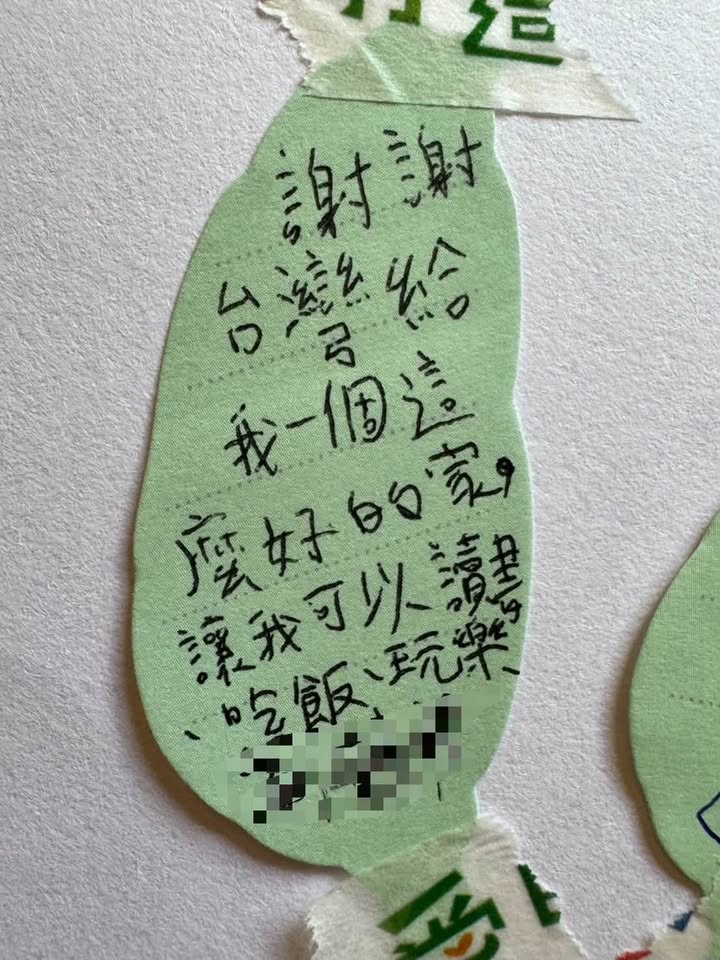 造
謝謝
台灣給
我一個這
麼好的家,
讓我可以讀書
、吃飯、玩樂、